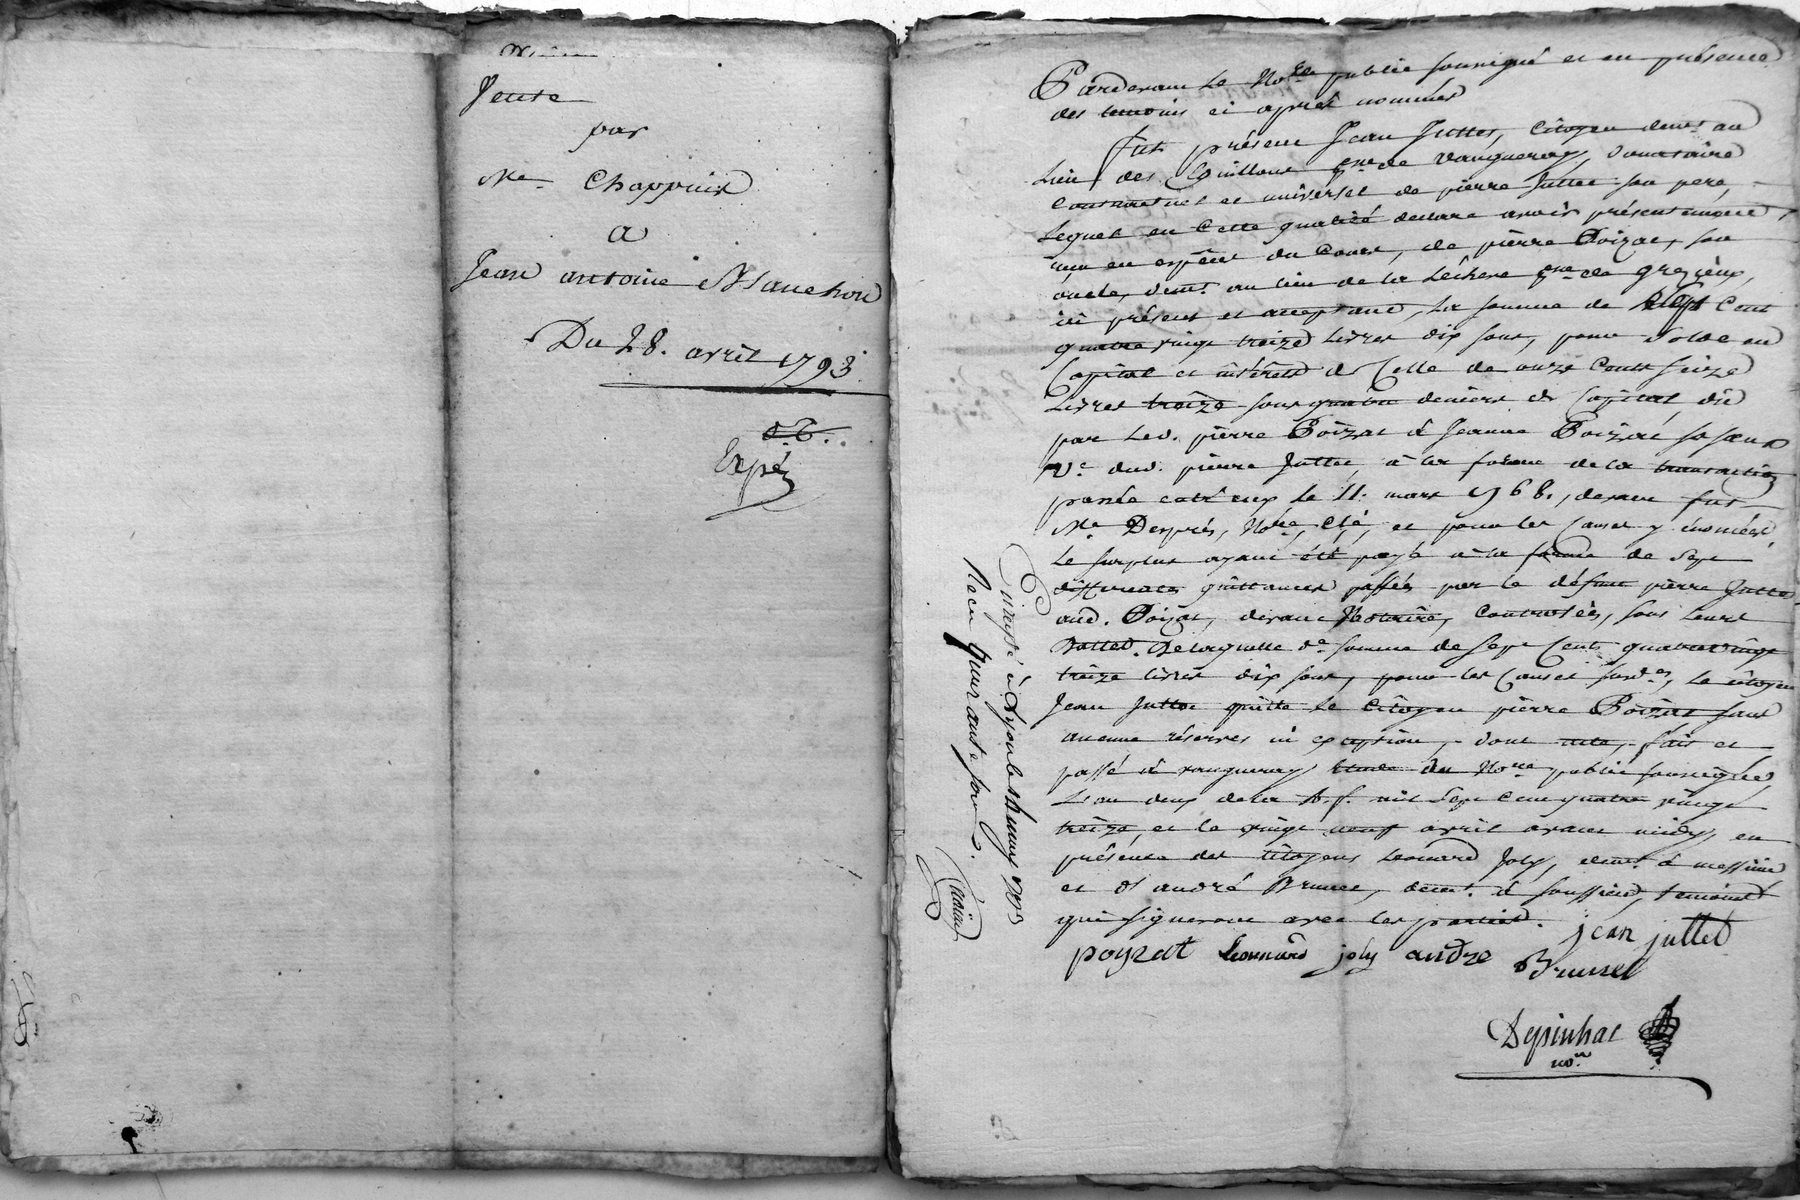 Vente
par
Me. Chappuis
a
Jean antoine Blanchon
Du 28. avril 1793.
Expé
Pardevant Le Nore. public soussigné et en présence
des temoins ci après nommés
fut présent Jean Juttet, Citoyen demt. au
Lieu des Quillons psse. de Vaugneray, donataire
Contractuel et universel de pierre Juttet son pere,
Lequel en Cette qualité declare avoir présentement
reçu en espèces du Cours, de pierre Poizat, son
oncle, demt. au lieu de la Lechere psse. de grezieux,
ici présent et acceptant, La somme de sept Cent
quatre vingt treize Livres dix sous, pour solde en
Capital et intérêts de Celle de onze Cents seize
Livres treize sous quatre deniers de Capital, dû
par led. pierre Poizat à Jeanne Poizat sa sœur
Ve. dud. pierre Juttet, à la forme de la transaction
passée entr'eux le 11. mars 1768., devant fut
Me. Desprès, Nore., Clé, et pour les Causes y énoncées,
Le surplus ayant été payé à la forme de Sept
différentes quittances passées par le défunt pierre Juttet
aud. Poizat, devant Notaire, Controlées, sous Leurs
Dattes. De laquelle de. somme de Sept Cent quatrevingt
treize livres dix sous, pour les Causes susdes., Le citoyen
Jean Juttet quitte Le Citoyen pierre Poizat sans
aucune réserves ni exception, - dont acte, - fait et
passé à vaugneray Etude du Nore. public soussigné
L'an deux de la R. f. mil Sept Cent quatre vingt
treize, et le vingt neuf avril avant midy, en
présence des Citoyens Leonard Joly, demt. à messimie
et d'andré Brunel, demt. à soussieu, temoins
qui signeront avec les parties.
jean juttet
poyzat leonnard joly andre Brunel
Depinhac
nore.
Enregistré à
1793
Reçu quarante sous.